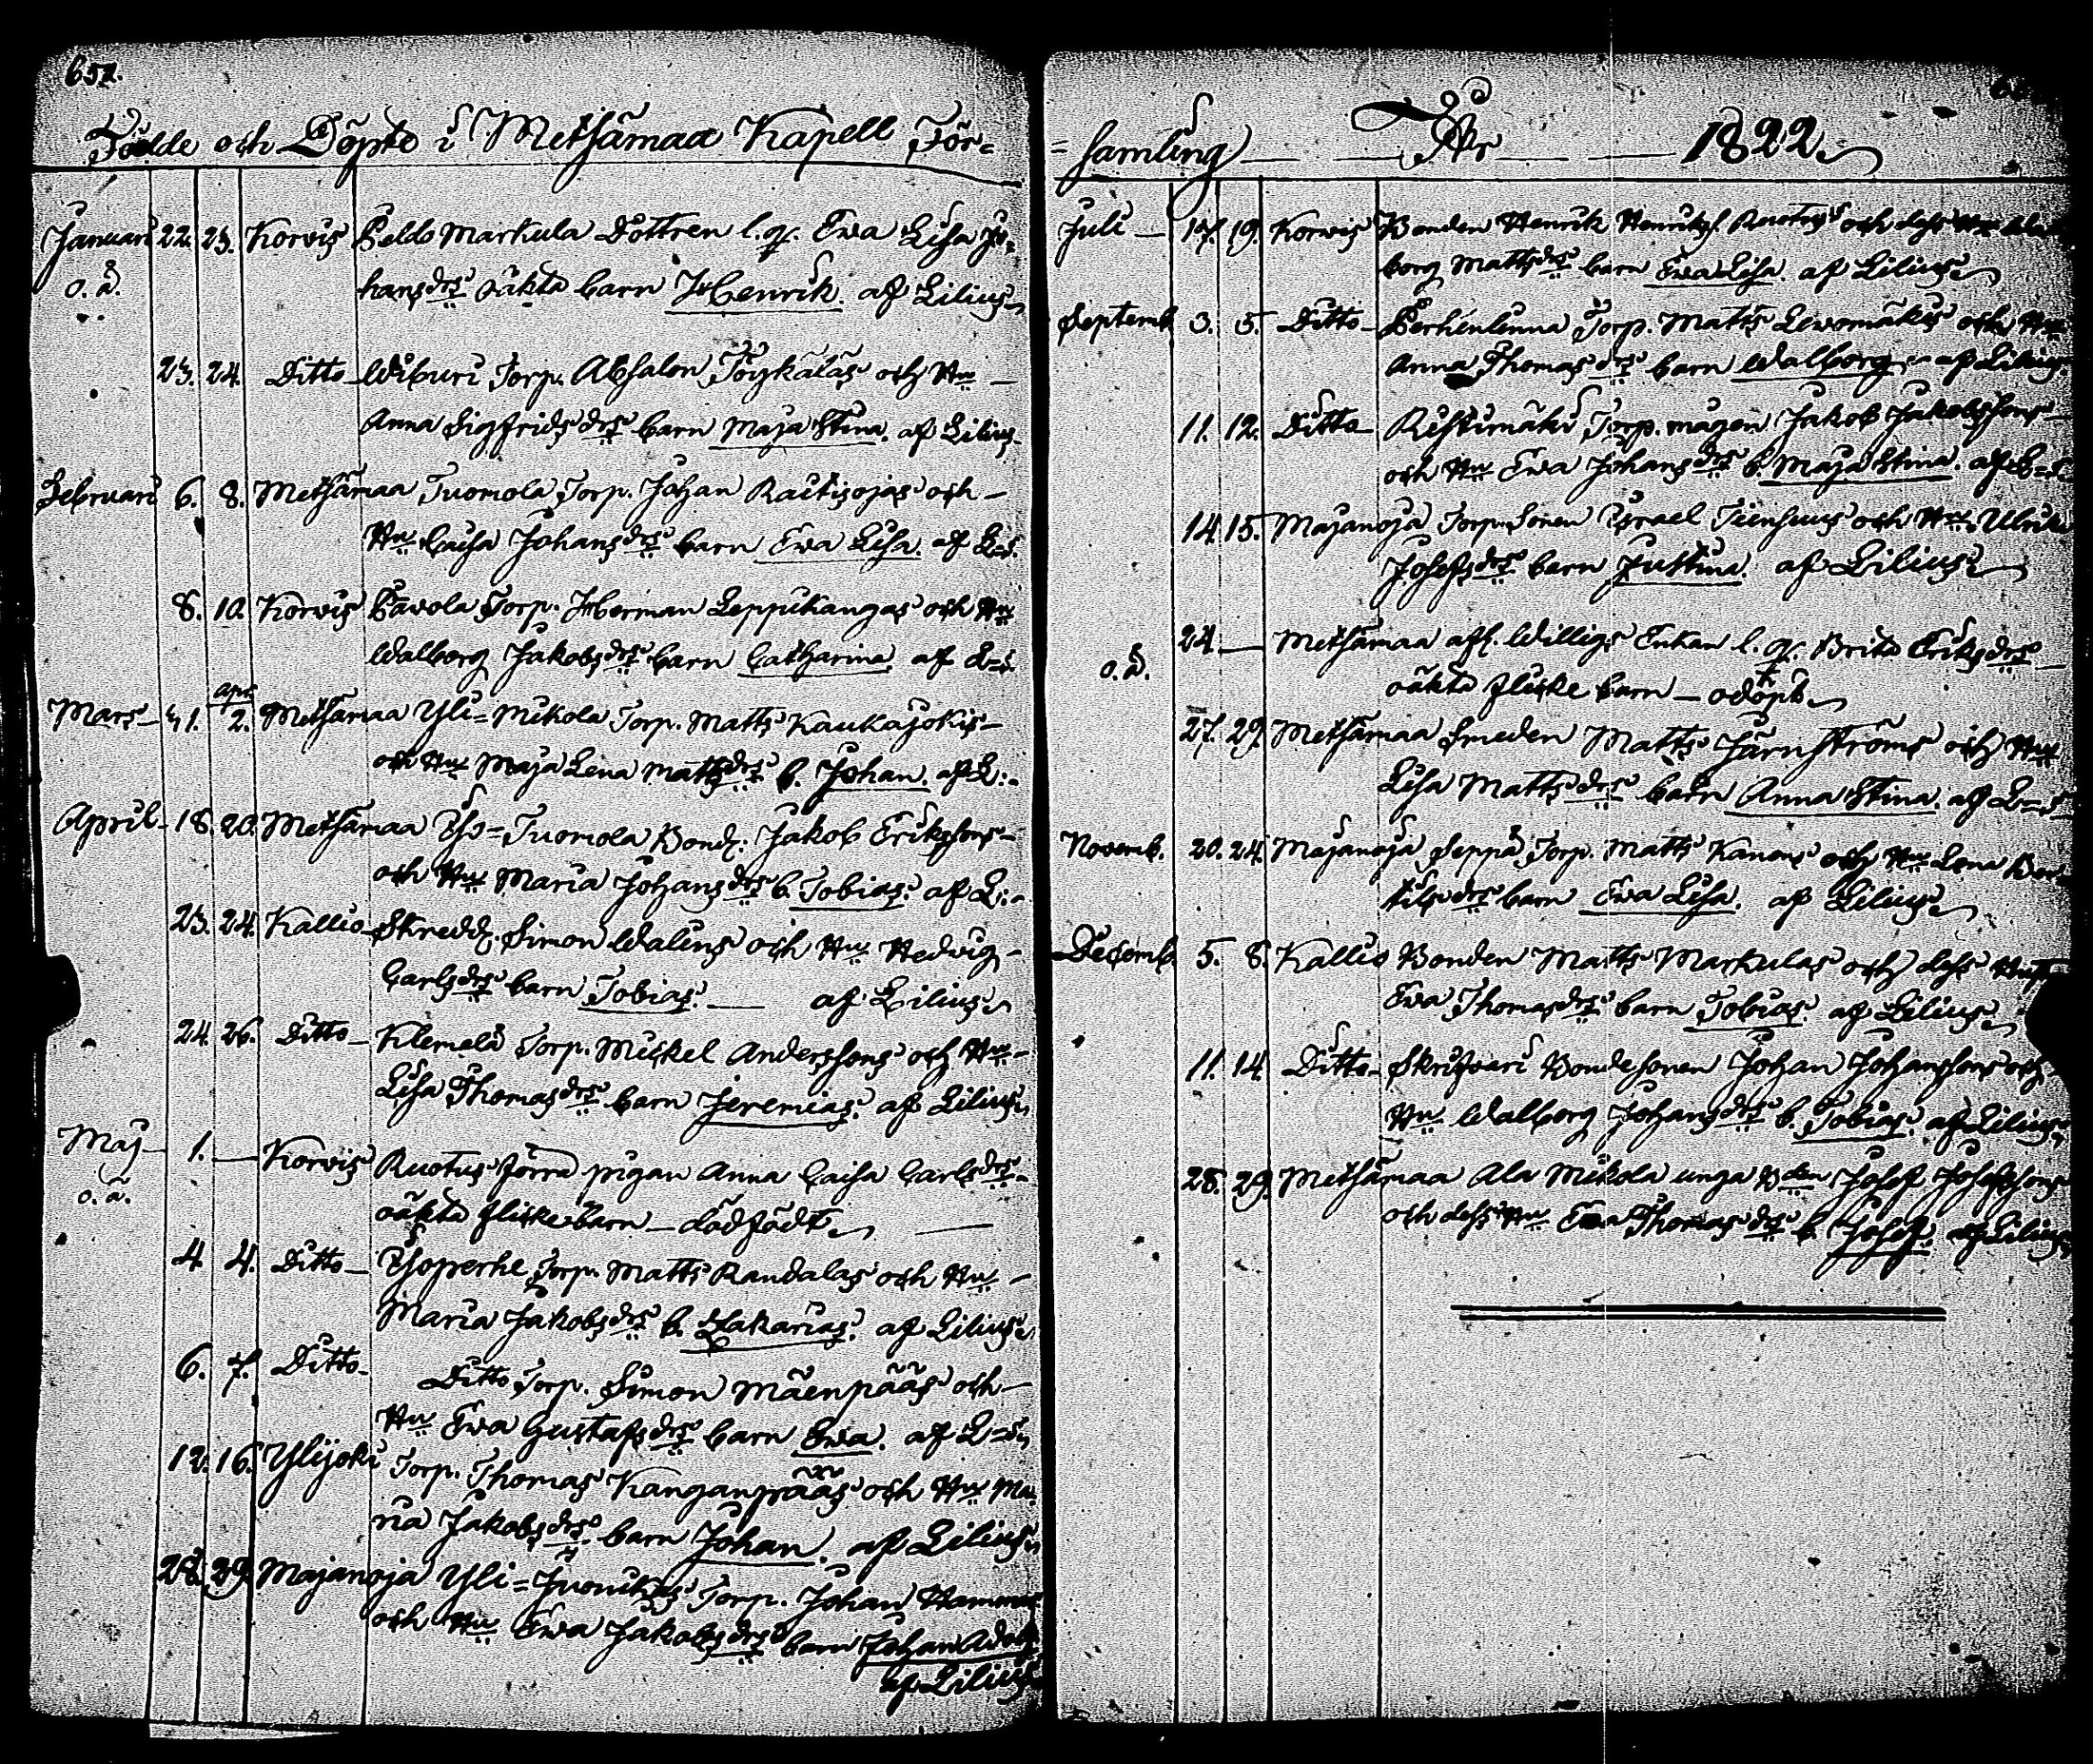 652.
Födde och Döpte i Metsämaa Kapell För=
Januari 22. 23. Korvis Peldo Markula Dottren l. q. Ewa Lisa Jo=
o. ä. hans drs oäkta barn Henrik. af Lilius
23. 24. Ditto Wiburi Torp. Absalon Töykäläs och Hu
Anna Sigfrids drs barn Maja Stina. af Lilius
Februari 6. 8. Metsämaa Tuomola Torp. Johan Raitisojas och
Hu Caisa Johans drs barn Ewa Lisa. af L=s.
8. 10. Korvis Pavola Torp. Herman Leppikangas och Hu
Walborg Jakobs drs barn Catharina af L=s.
Apr.
Mars 31. 2. Metsämaa Yli=Mikola Torp. Matts Kaukajokis
och Hu Maja Lena Matts drs b. Johan. af L:
April 18. 20. Metsämaa Iso=Tuomola Bond. Jakob Erikssons
och Hu Maria Johans drs b. Tobias. af L:
23. 24. Kallio Skredd. Simon Walens och Hu Hedvig
Carls drs barn Tobias. af Lilius
24. 26. Ditto Klemelä Torp. Mickel Anderssons och Hu
Lisa Thomas drs barn Jeremias. af Lilius
Maj 1. Korvis Ruotus Jörra pigan Anna Caisa Carls drs
o. ä. oäkta flickebarn dödfödt
4. 4. Ditto Isoperhe Torp. Matts Randalas och Hu
Maria Jakobs drs b. Zakarias. af Lilius
6. 7. Ditto Ditto Torp. Simon Mäenpääs och
Hu Ewa Gustafs drs barn Ewa. af L=s
12. 16. Ylijoki Torp. Thomas Kanganpääs och Hu Ma
ria Jakobs drs barn Johan. af Lilius
28. 29. Majanoja Yli= Torp. Johan
och Hu Ewa Jakobs drs barn Johan Adolf
af Lilius
=samling År 1822.
Juli 17. 19. Korvis Bonden Henrik Henrikss. Ruotus och dess Hu Wal
borg Matts drs barn Ewa Lisa. af Lilius
Septemb. 3. 5. Ditto Perhenlinna Torp. Matts Lewomäkis och Hu
Anna Thomas drs barn Walborg. af Lilius
11. 12. Ditto Ristimäki Torp. mågen Jakob Jakobssons
och Hu Ewa Johans drs b. Maja Stina. af L=s
14. 15. Majanoja Torp. Sonen Israel och Hu Ulrika
Josefs drs barn Justina. af Lilius
24. Metsämaa afl. Willigs Enkan l. q. Brita Eriks drs
o. ä. oäkta flicke barn odöpt
27. 29. Metsämaa Smeden Matts Järnströms och Hu
Lisa Matts drs barn Anna Stina. af L=s
Novemb. 20. 24. Majanoja Seppä Torp. Matts Kanons och Hu Lena Ber
tils drs barn Ewa Lisa. af Lilius
Decemb. 5. 8. Kallio Bonden Matts Markulas och dess Hu
Ewa Thomas drs barn Tobias. af Lilius
11. 14. Ditto Skrifvari Bondesonen Johan Johanssons och
Hu Walborg Johans drs b. Tobias. af Lilius
28. 29. Metsämaa Ala Mikola unga Bden Josef Josefssons
och dess Hu Ewa Thomas drs b. Josef. af Lilius